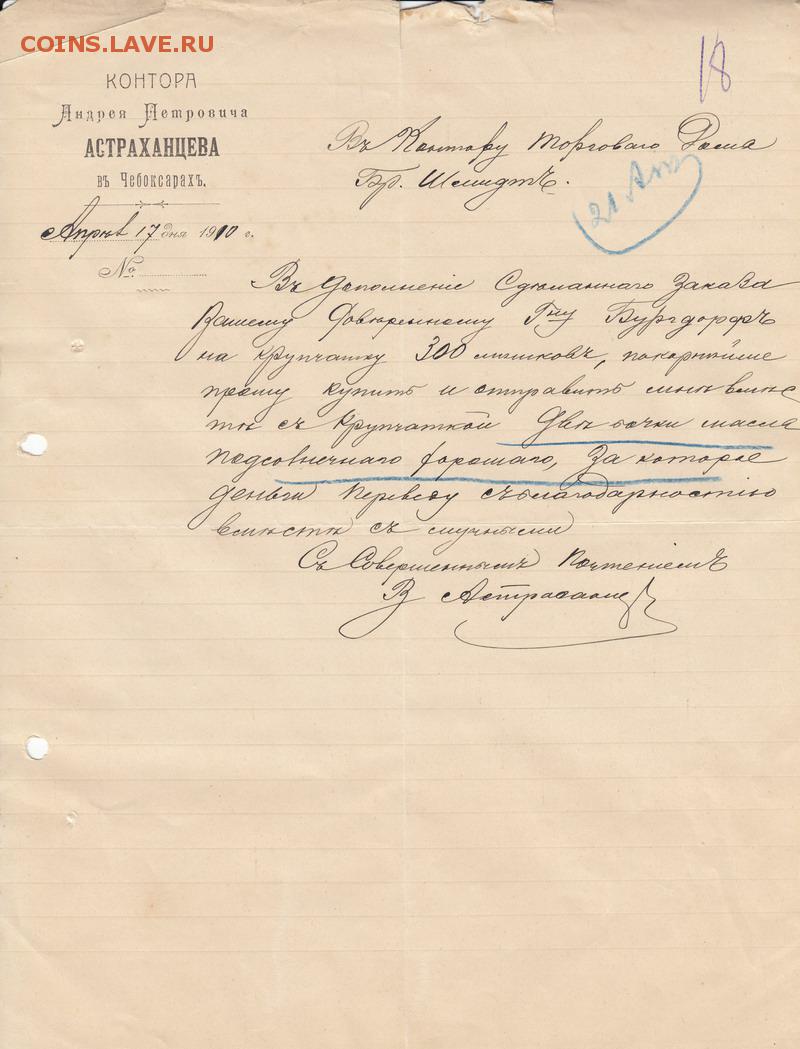 COINS.LAVE.RU
18
КОНТОРА
Андрея Петровича
АСТРАХАНЦЕВА
въ Чебоксарахъ.
Апрѣля 17 дня 1910 г.
№
Въ Контору Торговаго Дома
Бр. Шмидтъ.
21 Апр
Въ дополненіе Сдѣланнаго Заказа
Вашему Довѣренному Гну Бургдорфъ
на крупчатку 300 мѣшковъ, покорнѣйше
прошу купить и отправить мнѣ вмѣс
тѣ съ крупчаткой двѣ бочки масла
подсолнечнаго хорошаго, За которое
деньги переведу съ благодарностію
вмѣстѣ съ мучными
Съ Совершеннымъ Почтеніемъ
В Астраханцевъ